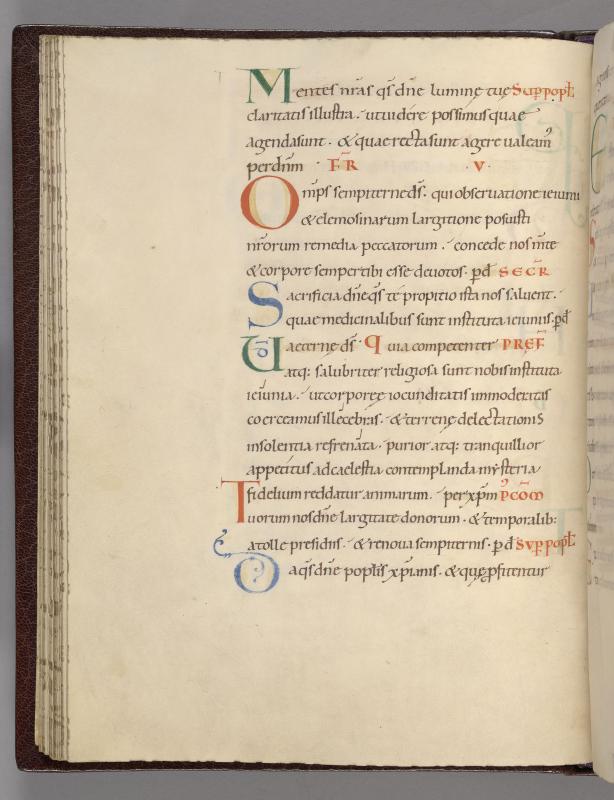 Mentes nr̄as qs̄ dn̄e lumine tuę Sup popl̄
claritatis illustra. ut uidere possimus quae
agenda sunt. & quae recta sunt agere ualeam᷒
per dn̄m FR̄ V
Om̄ps sempiterne ds̄. qui obseruatione ieiunii
& elemosinarum largitione posuisti
nr̄orum remedia peccatorum. concede nos m̄te
& corpore semper tibi esse deuotos. pd̄ SECR̄
Sacrificia dn̄e qs̄ te propitio ista nos saluent.
quae medicinalibus sunt instituta ieiuniis. pd̄
UD̄ aeterne ds̄. Quia competenter PREF̄
atq: salubriter religiosa sunt nobis instituta
ieiunia. ut corporeę iocunditatis immoderatas
coerceamus illecebras. & terrenę delectationis
insolentia refrenata. purior atq: tranquillior
appetitus ad caelestia contemplanda mysteria
fidelium reddatur animarum. per xp̄m P᷒CŌM
Tuorum nos dn̄e largitate donorum. & temporalib:
atolle presidiis. & renoua sempiternis. pd̄ Sup popl̄
Da qs̄ dn̄e poplis xp̄ianis. & quę ꝓfitentur